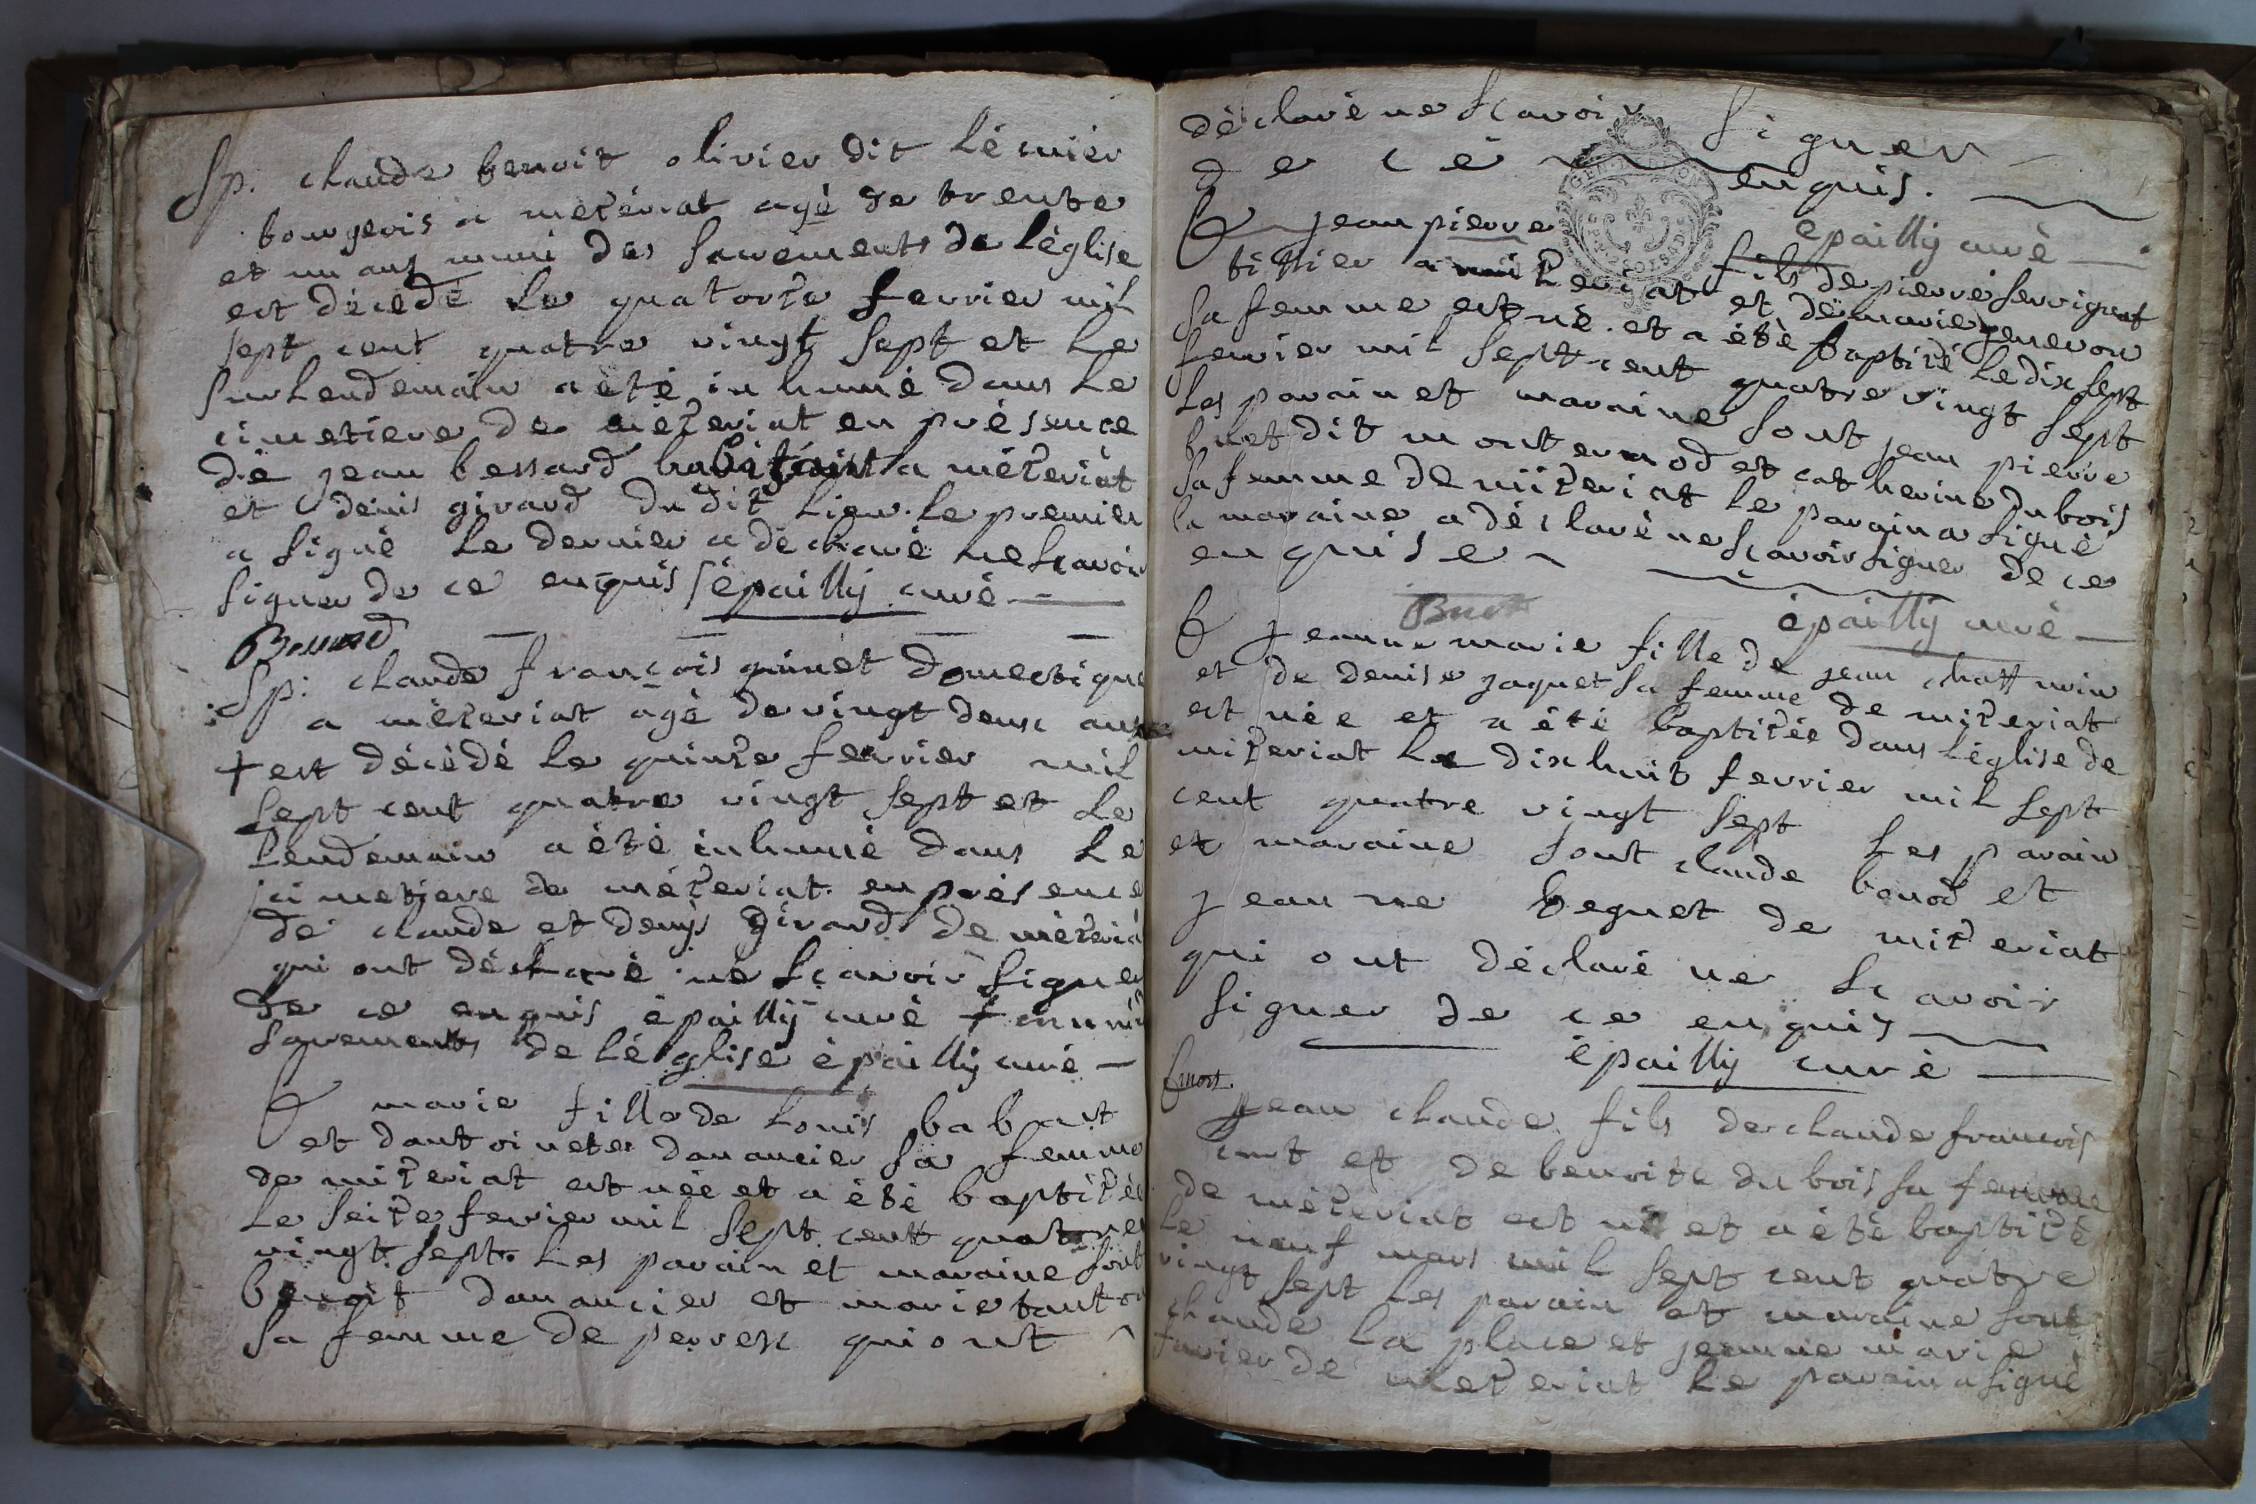 Sp. claude benoit olivier dit Lécuiér
bourgeois a mézériat agé de trente
et un ans muni des sacrements de l'église
est décédé le quatorze fevrier mil
sept cent quatre vingt sept et le
surlendemain a été inhumé dans le
cimetiere de mézeriat en présence
dé jean bessard habitant a mézeriàt
et denis girard du dit Lieu. Le premier
a signé Le dernier a déclaré ne scavoir
signer de ce enquis épailly curé
Bessard
Sp: claude françois guinet domestique
a mézeriat agé de vingt deux ans
+ est décédé le quinze fevrier mil
sept cent quatre vingt sept et Le
Lendemain a été inhumé dans Le
cimetiere de mézeriat en présence
de claude et denis Girard de mézeria
qui ont déclaré ne scavoir signer
de ce enquis épailly curé +
sacrements de l'église épailly curé
B marie fille de Louis babait
et dantoinete dananciér sa femme
de mizeriat est née et a été baptizée
Le seize fevrier mil sept cent quatre
vingt sept. Les parain et maraine sont
benoit danancier et marie
sa femme de perrex qui ont
déclaré ne scavoir signer
de cé enquis.
épailly curé
B jean pierre fils de pierre
a mizeriat et de marie
sa femme est né et a été baptizé Le dix sept
fevrier mil sept cent quatre vingt sept
Les parain et maraine sont jean pierre
buet dit montermod et catherine dubois
sa femme de mizeriat Le parain a signé
la maraine a déclaré ne scavoir signer de ce
enquise
Buet épailly curé
B jeanne marie fille de jean
et de denise jaquet sa femme de mizeriat
est née et a été baptizée dans L'église de
mizeriat Le dix huit fevrier mil sept
cent quatre vingt sept Les parain
et maraine sont claude bonod et
jeanne beguet de mizeriat
qui ont déclaré ne scavoir
signer de ce enquis
épailly curé
jean claude fils de claude francois
et de benoite dubois sa femme
de mézeriat est né et a été baptizé
Le neuf mars mil sept cent quatre
vingt sept Les parain et maraine sont
claude La place et jeanne marie
favier de mezeriat Le parain a signé